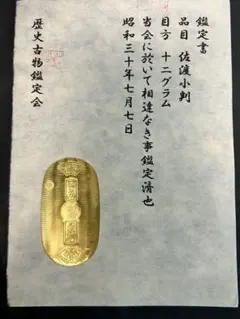 鑑定書
品目 佐渡小判
目方 十二グラム
当会に於いて相違なき事鑑定済也
昭和三十年七月七日
歴史古物鑑定会